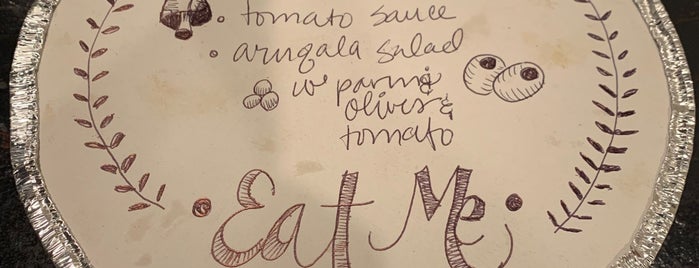 • tomato sauce
• arugala salad
w/ parm &
olives &
tomato
• Eat Me •